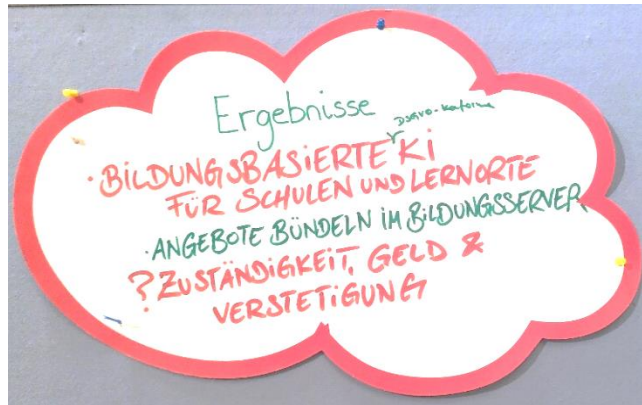 Ergebnisse
DSGVO-konforme
· BILDUNGSBASIERTE KI
FÜR SCHULEN UND LERNORTE
· ANGEBOTE BÜNDELN IM BILDUNGSSERVER
? ZUSTÄNDIGKEIT, GELD &
VERSTETIGUNG